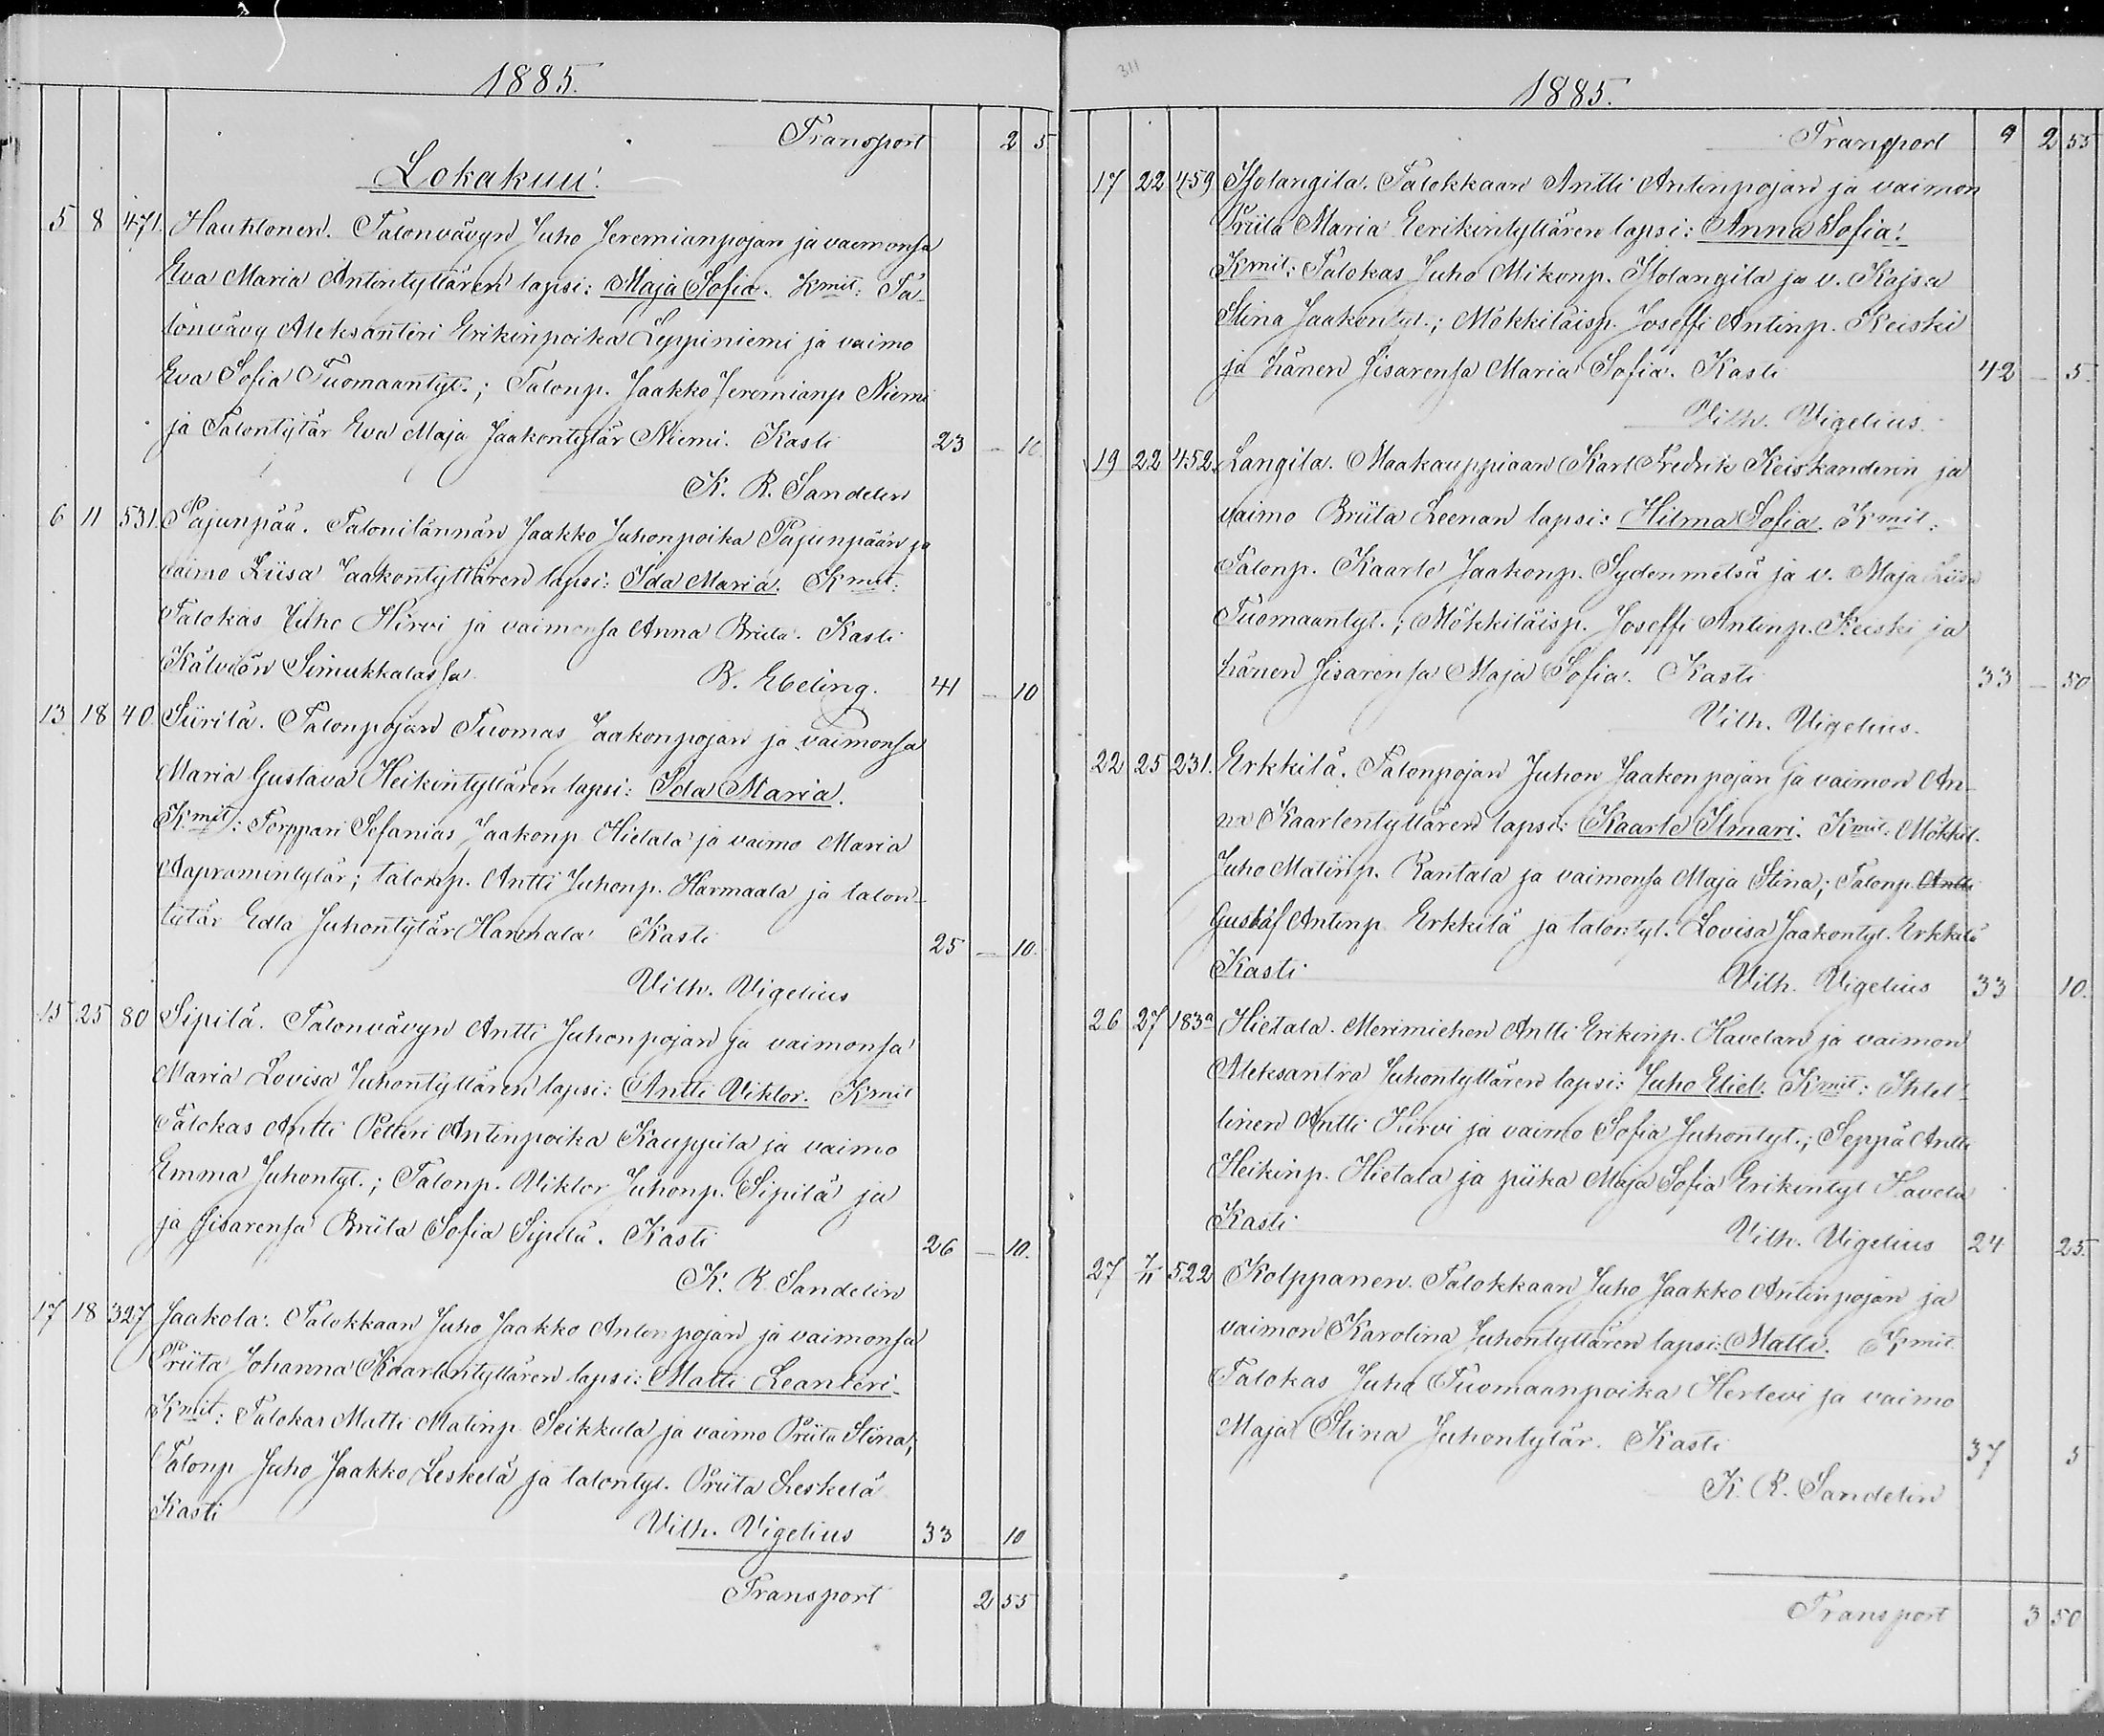 1885.
Transport 2 5.
Lokakuu.
5 8 471. Hauhtonen. Talonvävyn Juho Jeremianpojan ja vaimonsa
Eva Maria Antintyttären lapsi: Maja Sofia. Kmit: Ta-
lonvävy Aleksanteri Erikinpoika Leppiniemi ja vaimo
Eva Sofia Tuomaantyt.; Talonp. Jaakko Jeremianp Niemi
ja Talontytär Eva Maja Jaakontytär Niemi. Kasti 23 – 10.
K. R. Sandelin
6 11 531. Pajunpää. Talonisännän Jaakko Juhonpoika Pajunpään ja
vaimo Liisa Jaakontyttären lapsi: Ida Maria. Kmit:
Talokas Juho Hirvi ja vaimonsa Anna Briita. Kasti
Kälviön Simukkalassa. B. Ebeling. 41 – 10
13 18 40. Siirilä. Talonpojan Tuomas Jaakonpojan ja vaimonsa
Maria Gustava Heikintyttären lapsi: Ida Maria.
Kmit: Torppari Sefanias Jaakonp Hietala ja vaimo Maria
Aapramintytär; talonp. Antti Juhonp. Harmaala ja talon-
tytär Edla Juhontytär Harmala Kasti 25 – 10.
Vilh. Vigelius
15 25 80 Sipilä. Talonvävyn Antti Juhonpojan ja vaimonsa
Maria Lovisa Juhontyttären lapsi: Antti Viktor. Kmit
Talokas Antti Petteri Antinpoika Kauppila ja vaimo
Emma Juhontyt.; Talonp. Viktor Juhonp. Sipilä ja
ja sisarensa Briita Sofia Sipilä. Kasti 26 – 10.
K. R. Sandelin
17 18 327 Jaakola. Talokkaan Juho Jaakko Antonpojan ja vaimonsa
Priita Johanna Kaarlentyttären lapsi: Matti Leanteri.
Kmit: Talokas Matti Matinp. Seikkula ja vaimo Priita Stina;
Talonp Juho Jaakko Leskelä ja talontyt. Priita Leskelä
Kasti Vilh. Vigelius 33 10
Transport 2 55
311
1885.
Transport 9 2 55
17 22 459 Holangila. Talokkaan Antti Antinpojan ja vaimon
Priita Maria Eerikintyttären lapsi: Anna Sofia.
Kmit: Talokas Juho Mikonp. Holangila ja v. Kajsa
Stina Jaakontyt.; Mökkiläisp. Joseffi Antinp. Keiski
ja hänen sisarensa Maria Sofia. Kasti 42 – 5.
Vilh. Vigelius.
19 22 452 Langila. Maakauppiaan Karl Fredrik Keiskanderin ja
vaimo Briita Leenan lapsi: Hilma Sofia. Kmit:
Talonp. Kaarle Jaakonp. Sydenmetsä ja v. Maja Liisa
Tuomaantyt.; Mökkiläisp. Joseffi Antinp. Keiski ja
hänen sisarensa Maja Sofia. Kasti 33 – 50
Vilh. Vigelius.
22 25 231. Erkkilä. Talonpojan Juhon Jaakonpojan ja vaimon An-
na Kaarlentyttären lapsi: Kaarle Ilmari. Kmit: Mökkil.
Juho Matinp. Rantala ja vaimonsa Maja Stina; Talonp. Antti
Gustaf Antinp Erkkilä ja talontyt. Lovisa Jaakontyt. Erkkilä
Kasti Vilh. Vigelius 33 10.
26 27 183a Hietala. Merimiehen Antti Erikinp. Havelan ja vaimon
Aleksantra Juhontyttären lapsi: Juho Eliel. Kmit: Itsel-
linen Antti Hirvi ja vaimo Sofia Juhontyt.; Seppä Antti
Heikinp. Hietala ja piika Maja Sofia Erikintyt Havela
Kasti Vilh. Vigelius 24 25.
27 7/11 522 Kolppanen. Talokkaan Juho Jaakko Antinpojan ja
vaimon Karolina Juhontyttären lapsi: Matti. Kmit
Talokas Juho Tuomaanpoika Herlevi ja vaimo
Maja Stina Juhontytär. Kasti 37 5
K. R. Sandelin
Transport 3 50